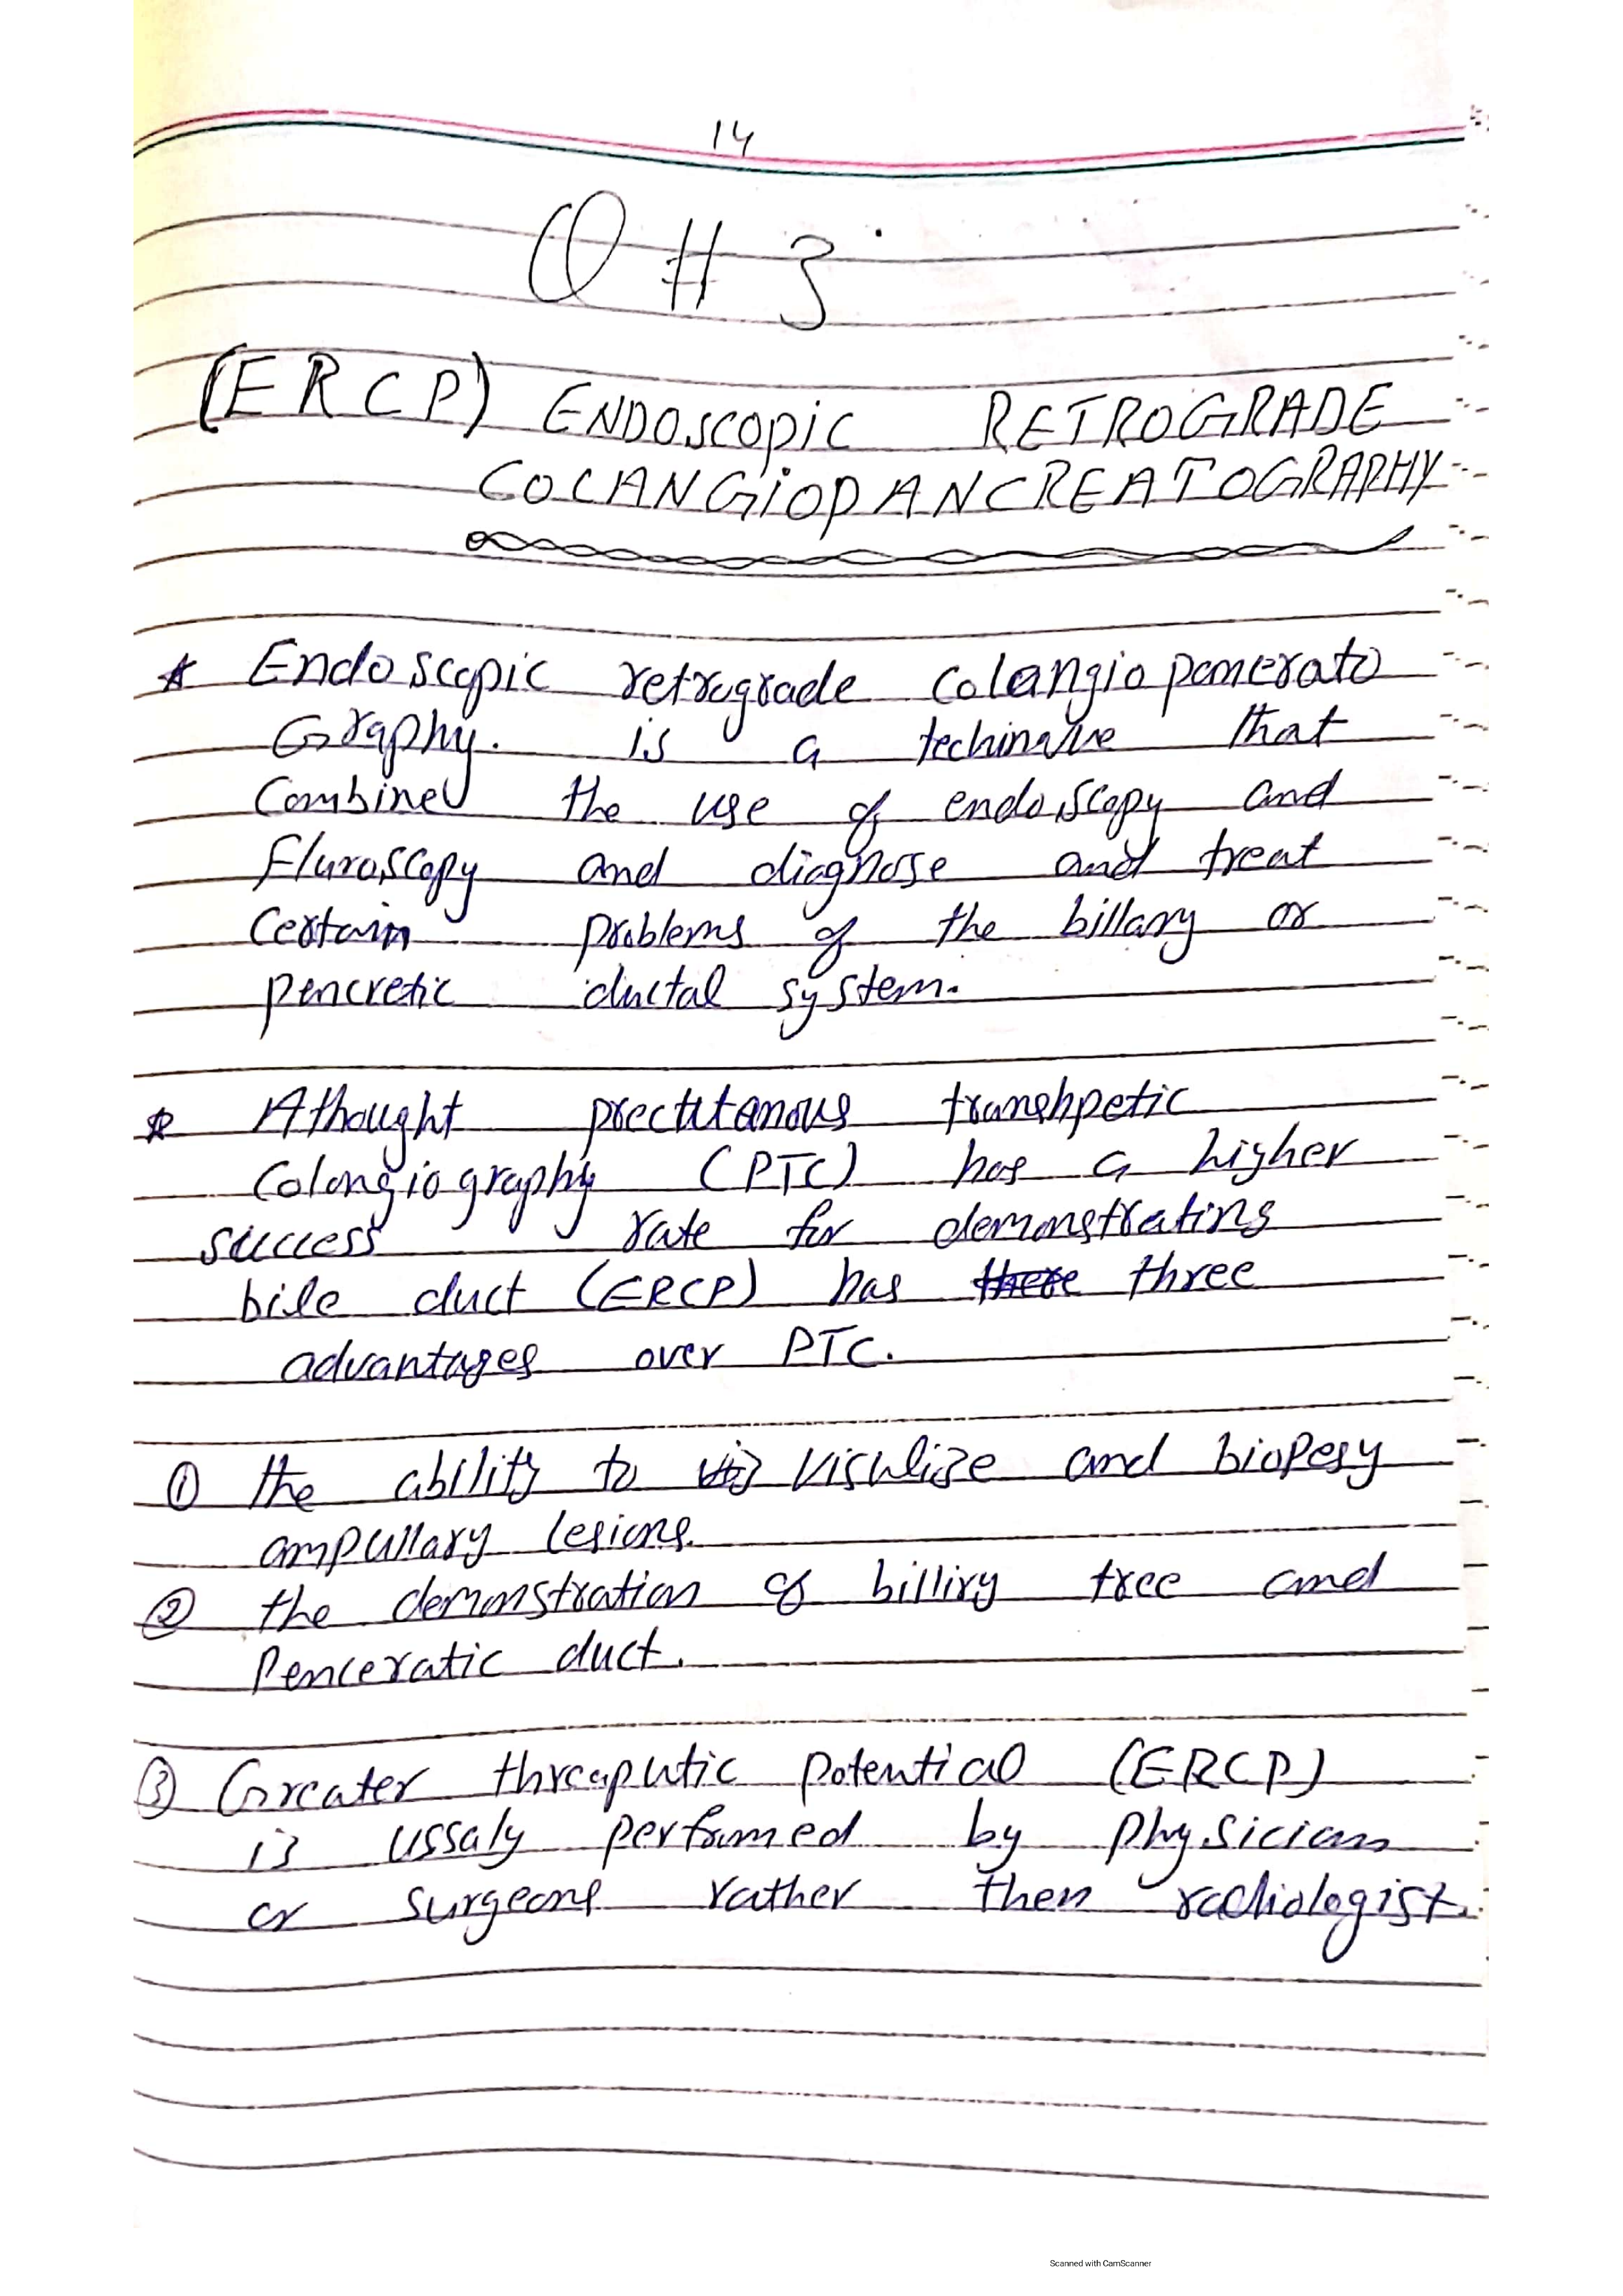 14
Q # 3
(ERCP) ENDOSCOPIC RETROGRADE
COLANGIOPANCREATOGRAPHY
* Endoscopic retrograde colangio pancrato
Graphy. is a that
Combined the use of endoscopy and
Fluroscopy and diagnose and treat
Certain problems of the billary or
pencretic ductal system.
* Athought prectutanous transhpetic
Colangiography (PTC) has a higher
success rate for demonstrating
bile duct (ERCP) has there three
advantages over PTC.
① the ability to vis visulize and biopesy
ampullary lesions.
② the demonstration of billiry tree and
Penceratic duct.
③ Greater threaputic potential (ERCP)
is ussaly perfomed by physician
or surgeons rather then radiologist.
Scanned with CamScanner